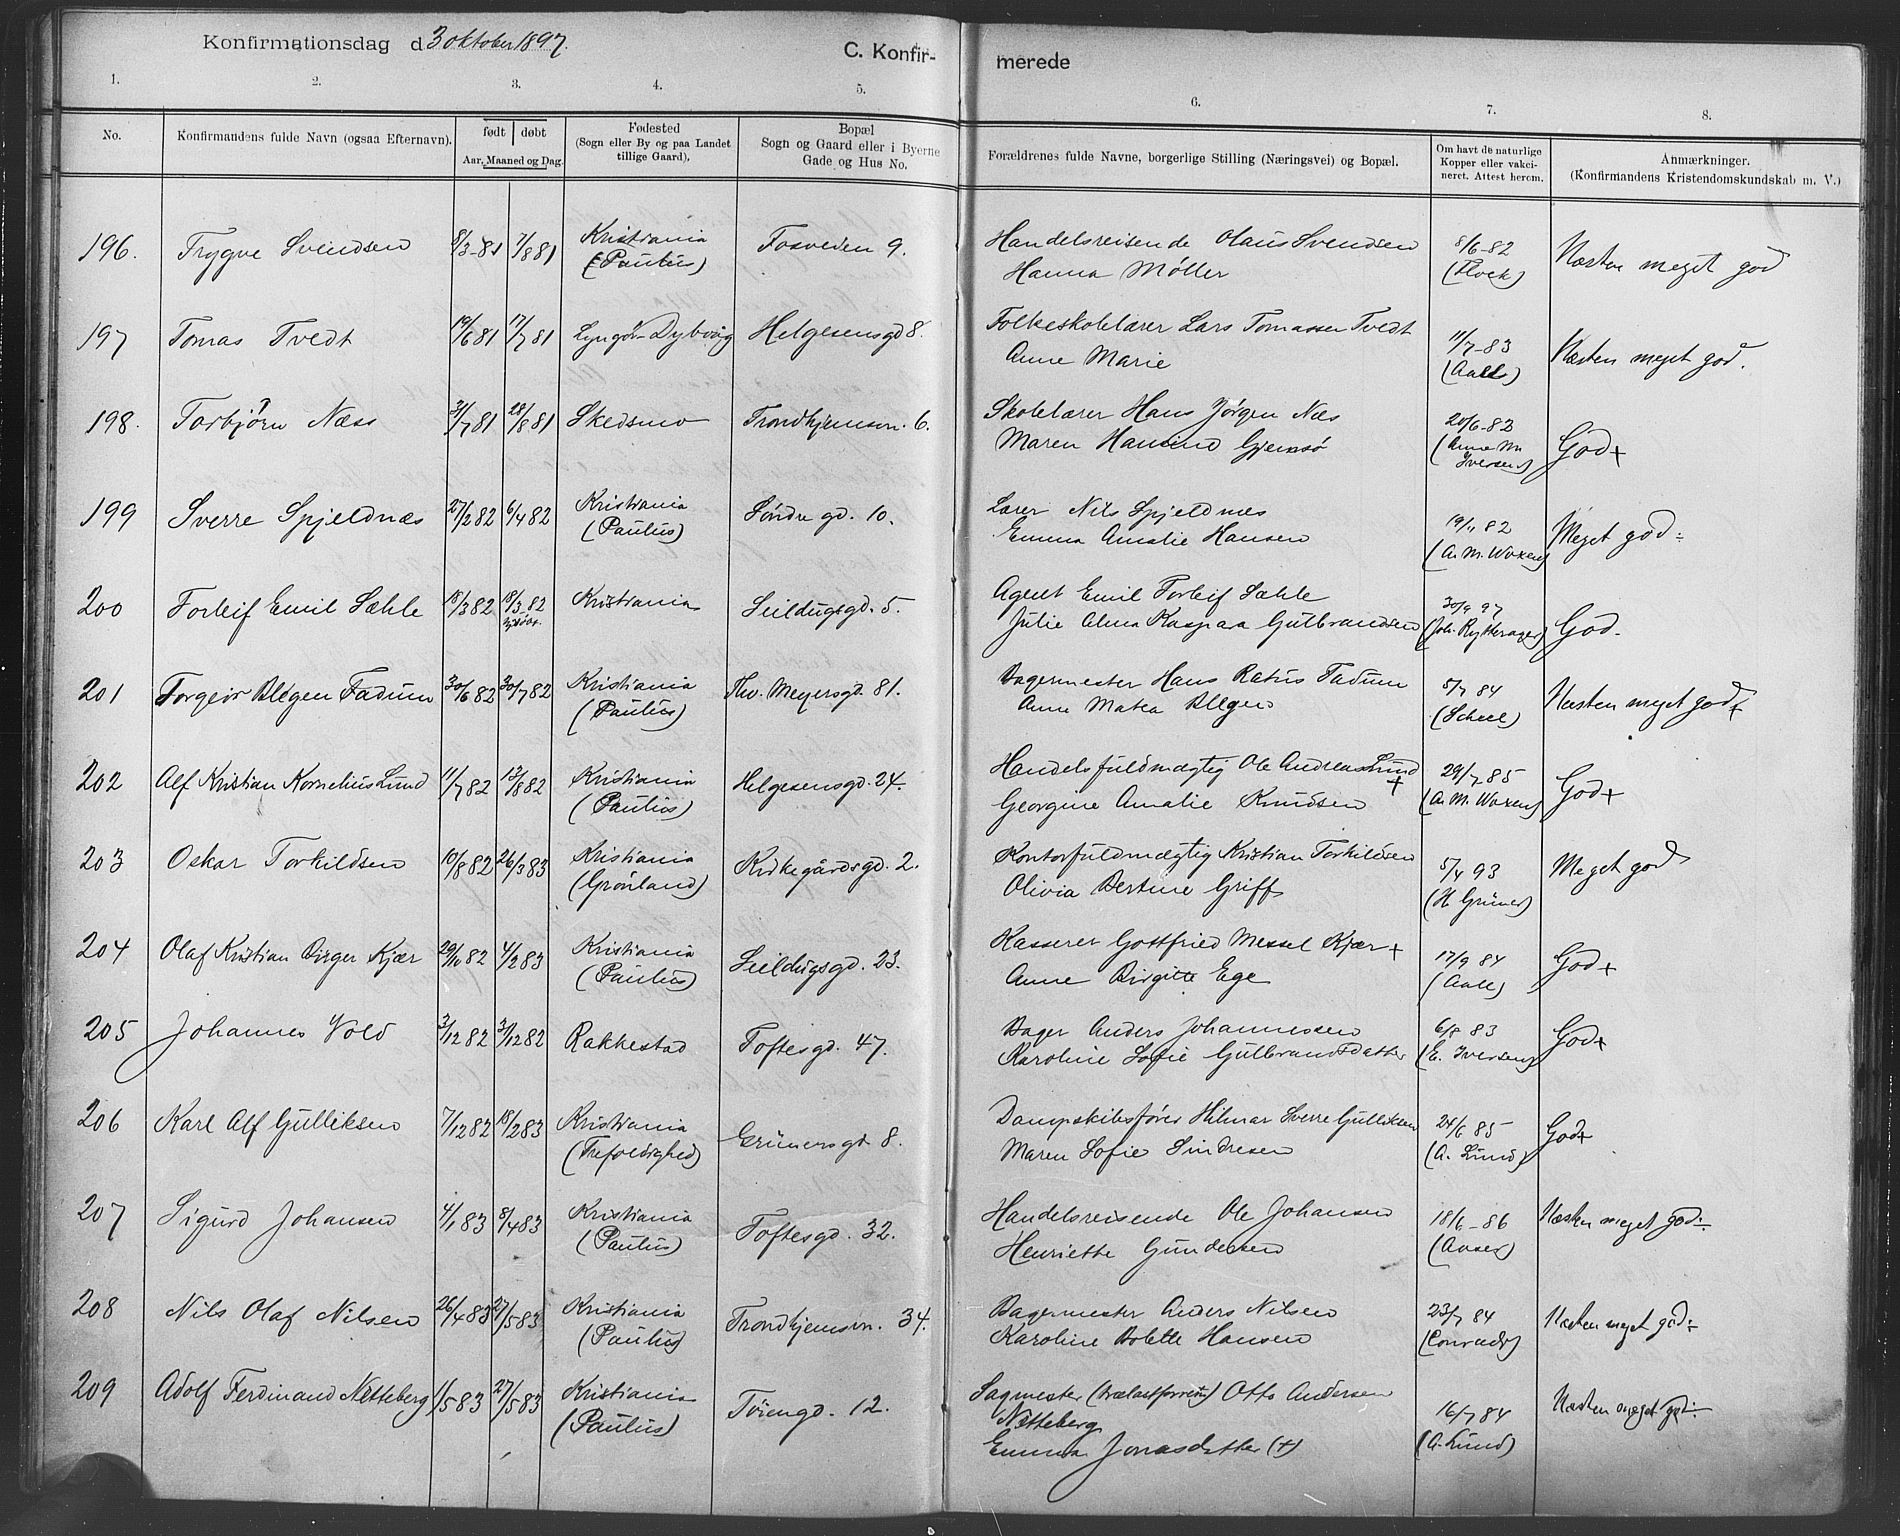 Konfirmationsdag d 3 oktober 1897.
C. Konfir- merede
1. 2. 3. 4. 5. 6. 7. 8.
No.
Konfirmandens fulde Navn (ogsaa Efternavn).
født døbt
Aar, Maaned og Dag.
Fødested
(Sogn eller By og paa Landet
tillige Gaard).
Bopæl
Sogn og Gaard eller i Byerne
Gade og Hus No.
Forældrenes fulde Navne, borgerlige Stilling (Næringsvei) og Bopæl.
Om havt de naturlige
Kopper eller vakci-
neret. Attest herom.
Anmærkninger.
(Konfirmandens Kristendomskundskab m. V.)
196. Trygve Svendsen 8/3-81 7/8 81 Kristiania Fosveden 9. Handelsreisende Olaus Svendsen 8/6-82 Næsten meget god
(Paulus) Hanna Møller (Flock)
197 Tomas Tvedt 19/6 81 17/7 81 Lyngør-Dybvåg Helgesensgd 8. Folkeskolelærer Lars Tomassen Tvedt 11/7-83 Næsten meget god.
Anne Marie (Aall)
198. Torbjørn Næss 31/7 81 28/8 81 Skedsmo Trondhjemsvn. 6. Skolelærer Hans Jørgen Næs 20/6-83 God+
Maren Hansine Gjemsø (Anne M.
Iversen)
199 Sverre Spjeldnæs 27/2 82 6/4 82 Kristiania Søndre gd. 10. Lærer Nils Spjeldnæs 19/11 82 Meget god÷
(Paulus) Emma Amalie Hansen (A. M. Woxen)
200 Torleif Emil Sæhle 18/3 82 18/3-82 Kristiania Seildugsgd. 5. Agent Emil Torleif Sæhle 30/9 97 God.
hjdøbt. Julie Alma Kaspara Gulbrandsen (Joh. Rytterager)
201 Torgeir Ellgen Fadum 30/6 82 30/7 82 Kristiania Thv. Meyersgd. 81. Bagermester Hans Ratus Fadum 5/7 84 Næsten meget god+
(Paulus) Anne Matea Ellgen (Scheel)
202 Alf Kristian Kornelius Lund 11/7 82 13/8 82 Kristiania Helgesensgd. 24. Handelsfuldmægtig Ole Andreas Lund + 29/7 85 God+
(Paulus) Georgine Amalie Knudsen (A. M. Woxen)
203 Oskar Torkildsen 10/8 82 26/3 83 Kristiania Kirkegårdsgd. 2. Kontorfuldmægtig Kristian Torkildsen 5/4 93 Meget god
(Grønland) Olivia Bertine Griff (H. Grüner)
204 Olaf Kristian Birger Kjær 29/10 82 4/2 83 Kristiania Seildugsgd. 23. Kasserer Gottfried Messel Kjær + 17/9 84 God+
(Paulus) Anne Birgitte Ege (Aall)
205 Johannes Vold 3/12 82 31/12 82 Rakkestad Toftesgd. 47. Bager Anders Johannessen 6/8 83 God+
Karoline Sofie Gulbrandsdatter (E. Iversen)
206 Karl Alf Gulliksen 7/12 82 18/2 83 Kristiania Grünersgd 8. Dampskibsfører Hilmar Sverre Gulliksen 24/6 85 God+
(Trefoldighed) Maren Sofie Sindresen (A. Lund)
207 Sigurd Johansen 4/1 83 8/4 83 Kristiania Toftesgd. 32. Handelsreisende Ole Johansen 18/6-86 Næsten meget god÷
(Paulus) Henriette Gundersen
208 Nils Olaf Nilsen 26/4 83 27/5 83 Kristiania Trondhjemsvn. 34. Bagermester Anders Nilsen 23/7 84 Næsten meget god÷
(Paulus) Karoline Bolette Hansen (Conradi)
209 Adolf Ferdinand Netteberg 1/5 83 27/5 83 Kristiania Tvergd. 12. Sagmester (Trælastforretn.) Otto Andersen 16/7 84 Næsten meget god÷
(Paulus) Netteberg (A. Lund)
Emma Jonasdatter (+)